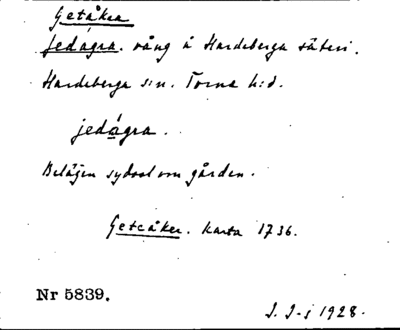 Getåkra
jedágra. vång å Hardeberga säteri.
Hardeberga sn. Torna h:d.
jedágra.
Belägen sydost om gården.
Getcåker. karta 1736.
Nr 5839.
J. I-j 1928.